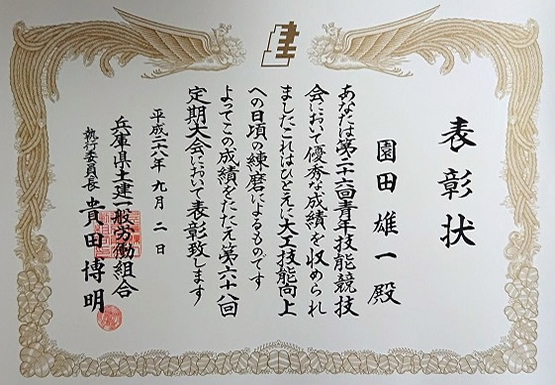 表彰状
園田雄一殿
あなたは第二十六回青年技能競技
会において優秀な成績を収められ
ましたこれはひとえに大工技能向上
への日頃の練磨によるものです
よってこの成績をたたえ第六十八回
定期大会において表彰致します
平成二十八年九月二日
兵庫県土建一般労働組合
執行委員長 貴田博明